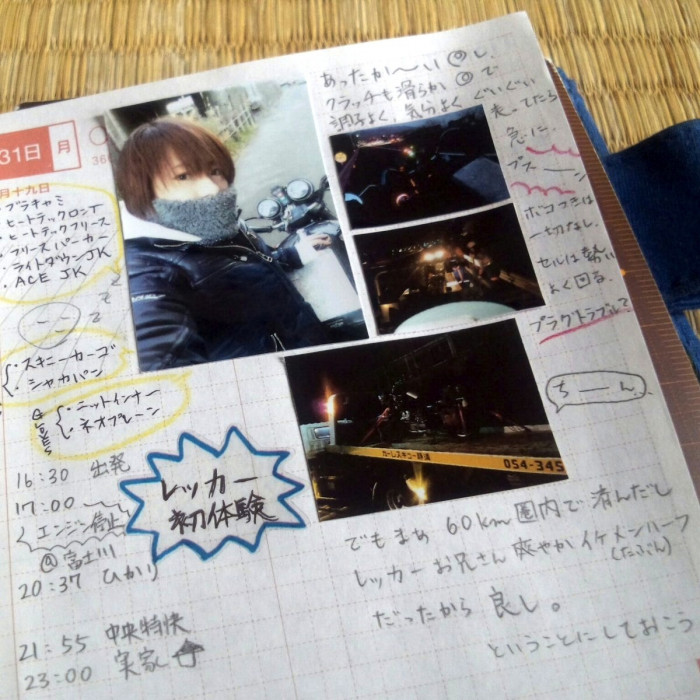 31日 月
月十九日
・ブラキャミ
・ヒートテックロンT
・ヒートテックフリース
・フリースパーカー
・ライトダウンJK
・ACE JK
・スキニーカーゴ
シャカパン
GLOVES
・ニットインナー
・ネオプレーン
16:30 出発
17:00
エンジン停止
@富士川
20:37 ひかり
21:55 中央特快
23:00 実家
レッカー
初体験
あったか〜い◎し、
クラッチも滑らか◎で
調子よく、気分よく ぐいぐい
来てたら
急に、
プスーン
ボコつきは
一切なし。
セルは勢い
よく回る。
プラグトラブル?
ちーん。
054-345
でもまぁ 60km圏内で済んだし
レッカーお兄さん 爽やかイケメンハーフ
(たぶん)
だったから 良し。
ということにしておこう